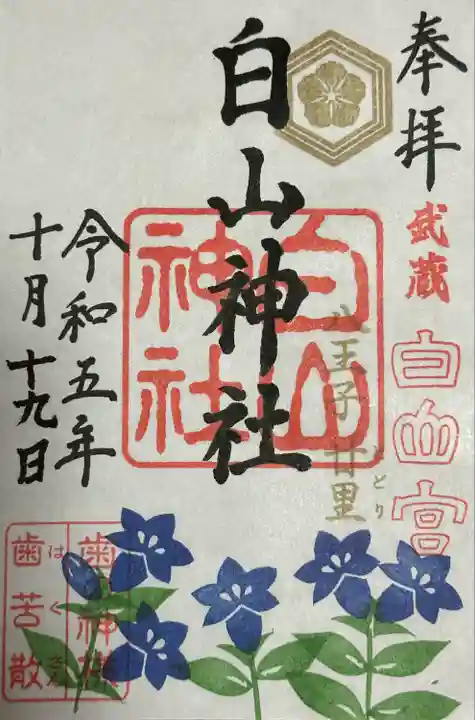 奉拝
武蔵
白山宮
白山神社
白山神社
八王子 廿里
とどり
令和五年
十月十九日
歯神様
歯苦散